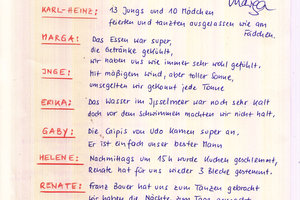 Marga
KARL-HEINZ: 13 Jungs und 10 Mädchen
feierten und tanzten ausgelassen wie am
Fädchen.
MARGA: Das Essen war super,
die Getränke gekühlt,
wir haben uns wie immer sehr wohl gefühlt.
INGE: Mit mäßigem Wind, aber toller Sonne,
umsegelten wir gekonnt jede Tonne
ERIKA: Das Wasser im Ijsselmeer war noch sehr kalt
doch vor dem Schwimmen machten wir nicht halt.
GABY: Die Caipis von Udo kamen super an,
Er ist einfach unser bester Mann
HELENE: Nachmittags um 15h wurde Kuchen geschlemmt,
Renate hat für uns wieder 3 Bleche gestemmt.
RENATE: Franz Bauer hat uns zum Tanzen gebracht
wir haben die Nächte zum Tage gemacht